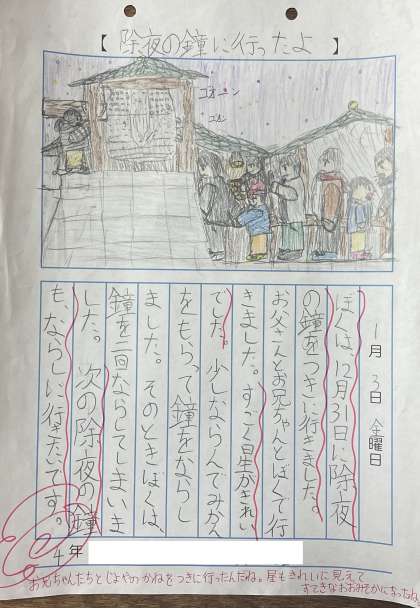 【 除夜の鐘に行ったよ 】
ゴオーン
ゴオン
1月3日 金曜日
ぼくは、12月31日に除夜
の鐘をつきに行きました。
お父さんとお兄ちゃんとぼくで行
きました。すごく星がきれい
でした。少しならんでみかん
をもらって鐘をならし
ました。そのときぼくは、
鐘を二回ならしてしまいま
した。次の除夜の鐘
も、ならしに行きたいです。
4年
お兄ちゃんたちとじょやのかねをつきに行ったんだね。星もきれいに見えて
すてきなおおみそかになったね